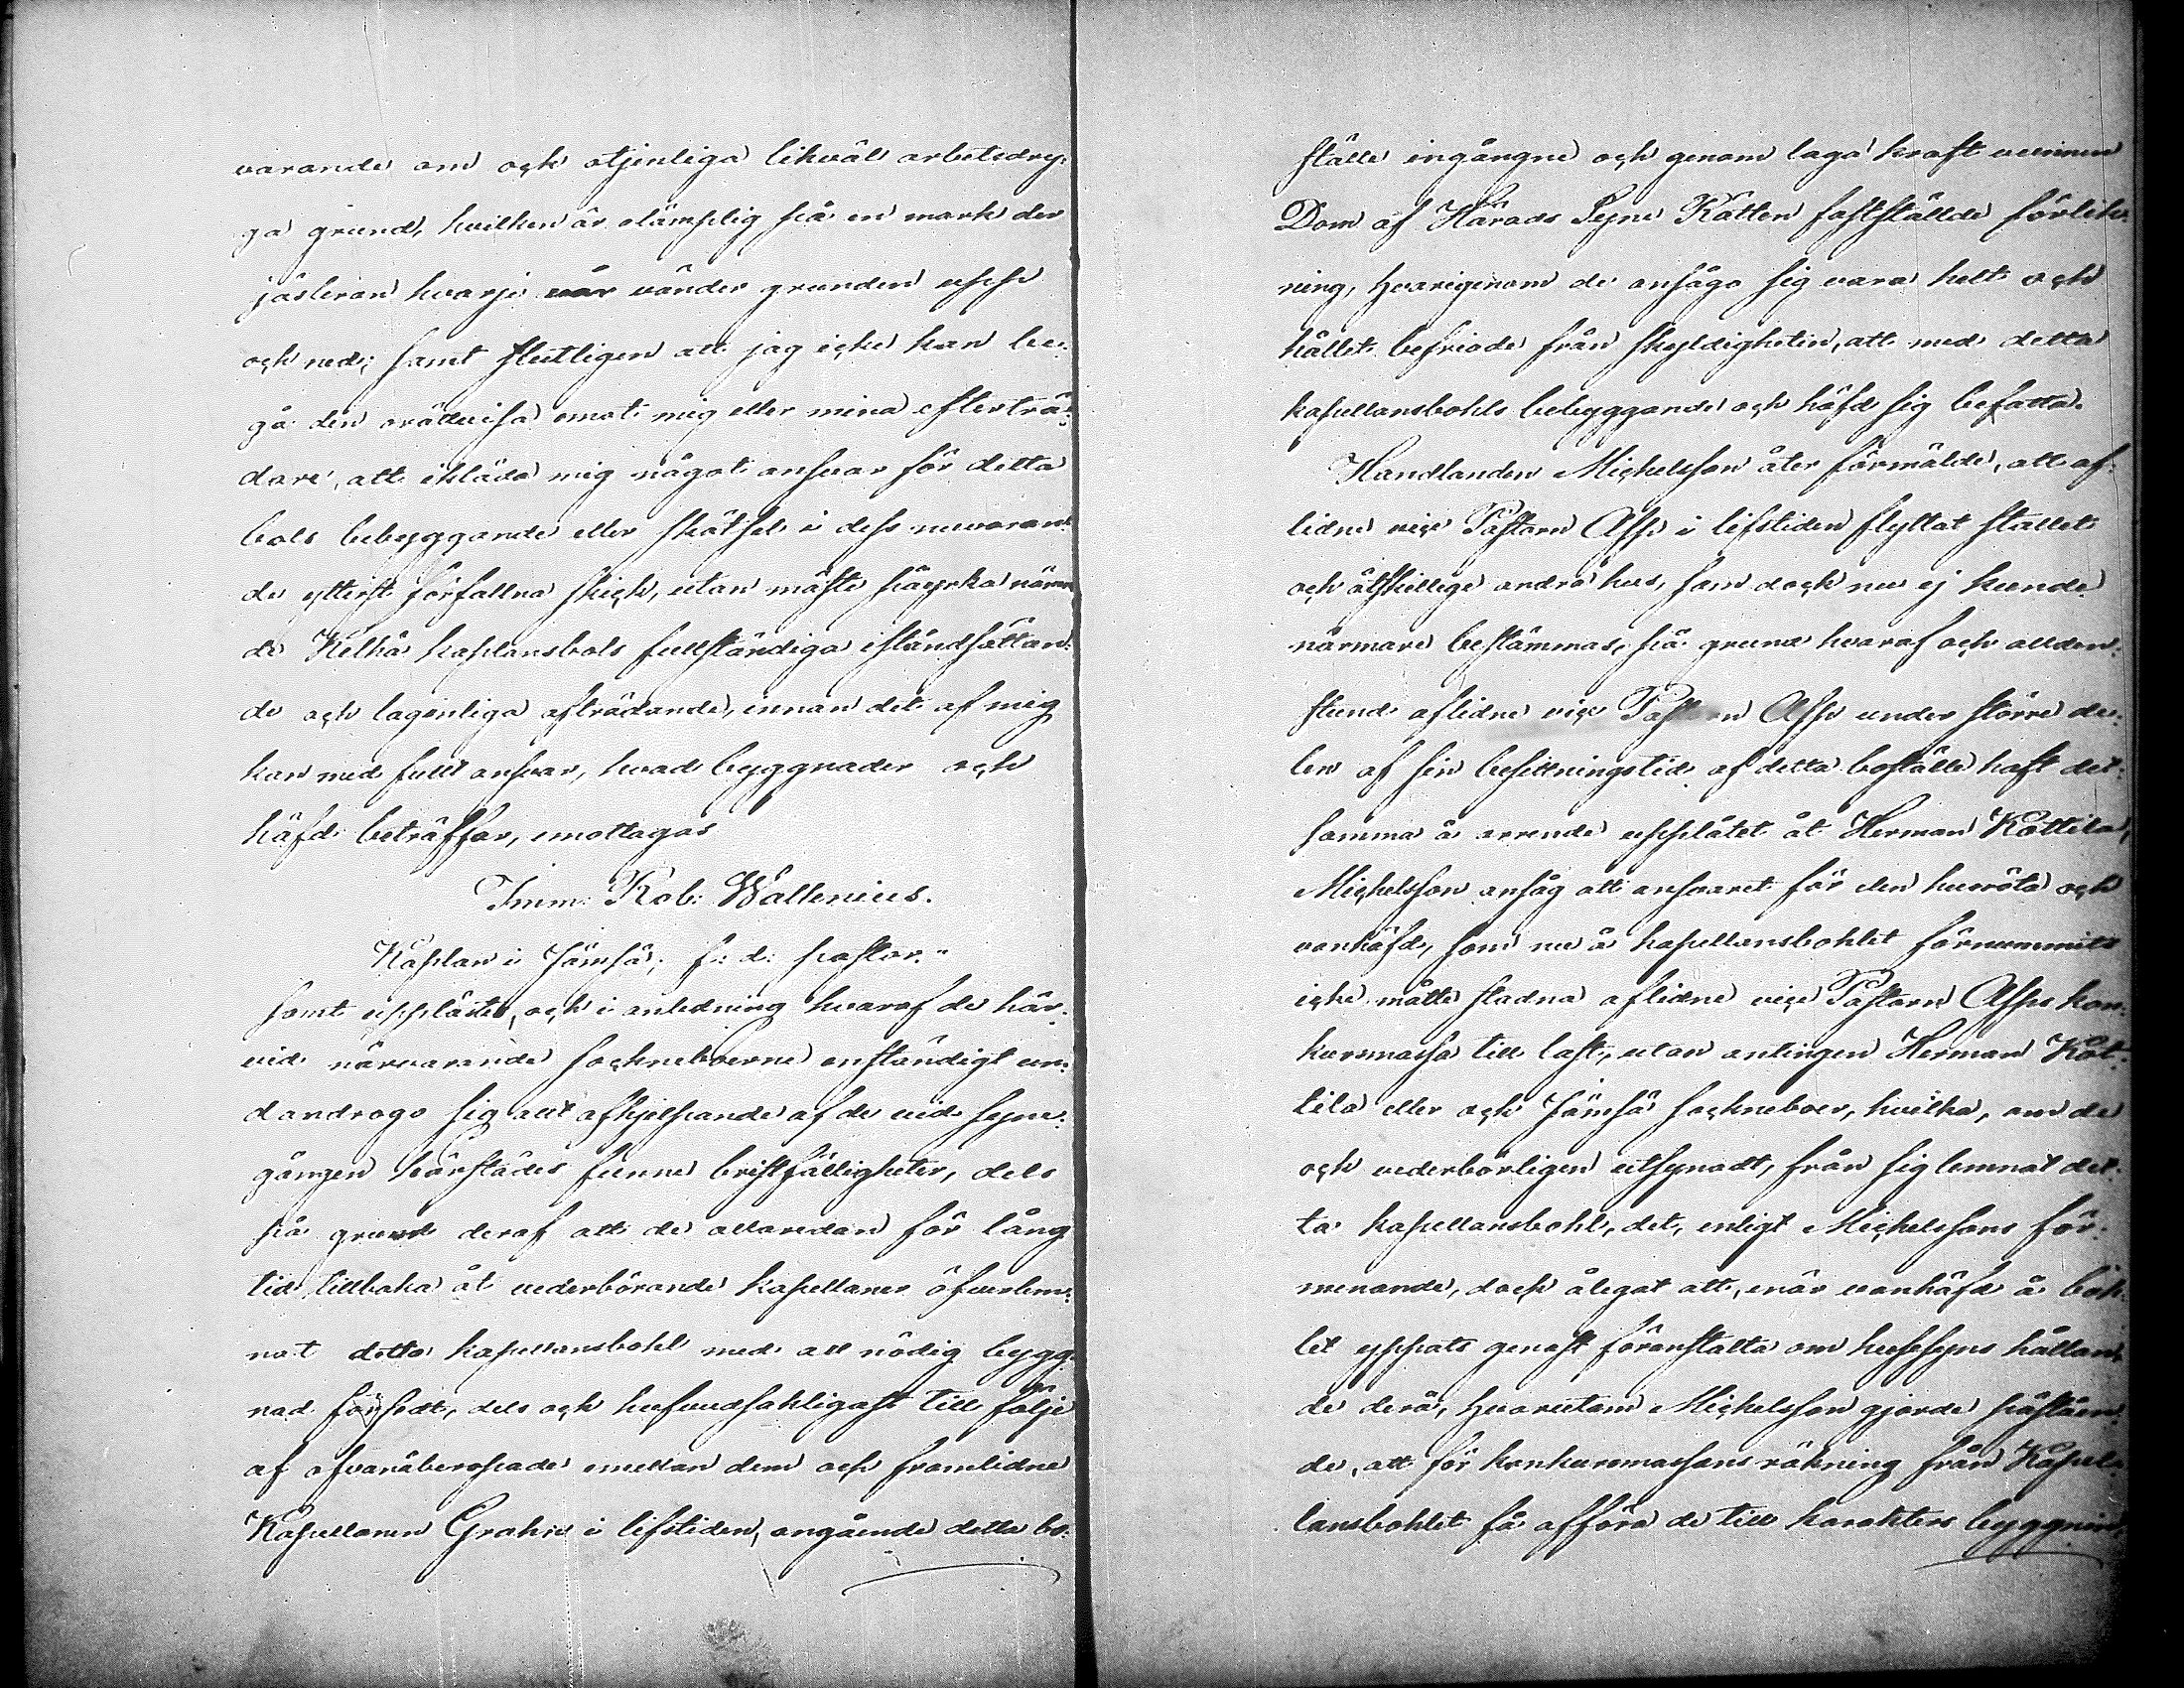 varande om ock otjenliga likväl arbetsdry-
ga grund, hvilken är olämplig på en mark der
jäsleran hvarje vår vänder grunden upp
och ned; samt slutligen att jag icke kan be-
gå den orättvisa emot mig eller mina efterträ-
dare, att ikläda mig något ansvar för detta
bols bebyggande eller skötsel i dess nuvaran-
de ytterst förfallna skick, utan måste påyrka nämn-
de Kelhä kaplansbols fullständiga iståndsättan-
de och lagenliga afträdande, innan det af mig
kan med fullt ansvar, hvad byggnader och
häfd beträffar, emottagas
Imm: Rob: Wallenius.
Kaplan i Jämsä; f: d: pastor."
samt upplästes, och i anledning hvaraf de här-
vid närvarande sockneboerne enständigt un-
dandrogo sig allt afhjelpande af de vid syne-
gången härstädes funne bristfälligheter, dels
på grund deraf att de allaredan för lång
tid tillbaka åt vederbörande kapellaner öfverlem-
nat detta kapellansbohl med all nödig bygg-
nad försedt, dels och hufvudsakligast till följe
af ofvanåberopade emellan dem och framlidne
Kapellanen Grahn i lifstiden, angående detta bo-
ställe ingångne och genom laga kraft vunnen
Dom af Härads Syne Rätten fastställde förlik-
ning, hvarigenom de ansågo sig vara helt och
hållet befriade från skyldigheten, att med detta
kapellansbohls bebyggande och häfd sig befatta.
Handlanden Michelsson åter förmälde, att af-
lidne vice Pastorn Alfp i lifstiden flyttat stallet
och åtskillige andra hus, som dock nu ej kunde
närmare bestämmas, på grund hvaraf och allden-
stund aflidne vice Pastorn Alfp under större de-
len af sin besittningstid af detta boställe haft det-
samma å arrende upplåtet åt Herman Kottila,
Michelsson ansåg att ansvaret för den husröta och
vanhäfd, som nu å kapellansbohlet förnummits
icke måtte stadna aflidne vice Pastorn Alfps kon-
kursmassa till last, utan antingen Herman Kot-
tila eller och Jämsä sockneboer, hvilka, om de
ock vederbörligen utsynadt, från sig lemnat det-
ta kapellansbohl, det, enligt Michelssons för-
menande, dock ålegat att, enär vanhäfd å boh-
let yppats genast föranstalta om hussyns hållan-
de derå, hvarutom Michelsson gjorde påståen-
de, att för konkursmassans räkning från Kapel-
lansbohlet få afföra de till karakters byggnin-